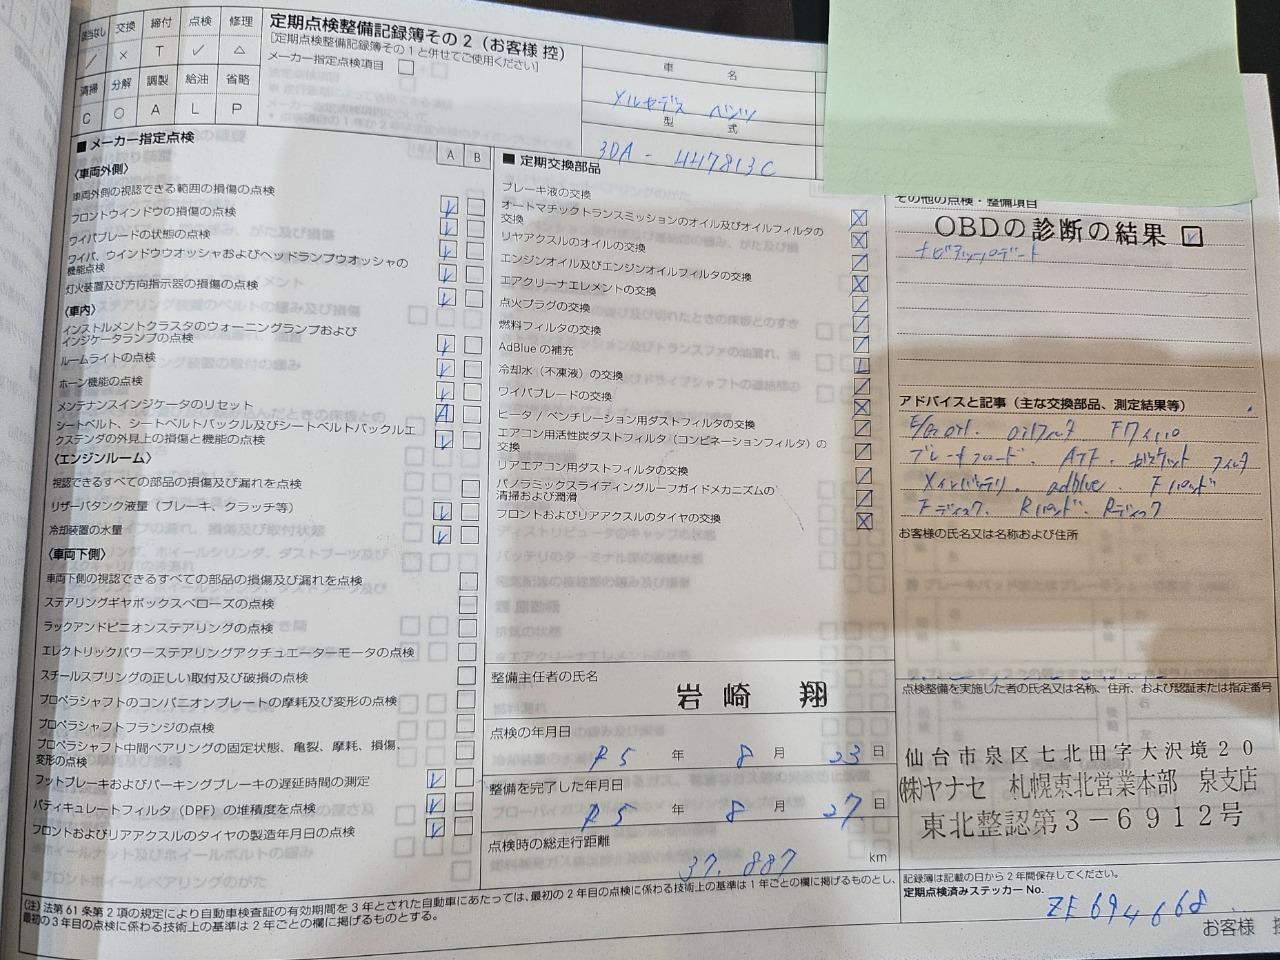 該当なし 交換 締付 点検 修理
／ × T ✓ △
清掃 分解 調製 給油 省略
C ○ A L P
定期点検整備記録簿その2（お客様 控）
[定期点検整備記録簿その1と併せてご使用ください]
メーカー指定点検項目
車名
メルセデス ベンツ
型式
3DA-447813C
■ メーカー指定点検
A B
〈車両外側〉
車両外側の視認できる範囲の損傷の点検
フロントウインドウの損傷の点検
ワイパブレードの状態の点検
ワイパ、ウインドウウオッシャおよびヘッドランプウオッシャの
機能点検
灯火装置及び方向指示器の損傷の点検
〈車内〉
インストルメントクラスタのウォーニングランプおよび
インジケータランプの点検
ルームライトの点検
ホーン機能の点検
メンテナンスインジケータのリセット A
シートベルト、シートベルトバックル及びシートベルトバックルエ
クステンダの外見上の損傷と機能の点検
〈エンジンルーム〉
視認できるすべての部品の損傷及び漏れを点検
リザーバタンク液量（ブレーキ、クラッチ等）
冷却装置の水量
〈車両下側〉
車両下側の視認できるすべての部品の損傷及び漏れを点検
ステアリングギヤボックスベローズの点検
ラックアンドピニオンステアリングの点検
エレクトリックパワーステアリングアクチュエーターモータの点検
スチールスプリングの正しい取付及び破損の点検
プロペラシャフトのコンパニオンプレートの摩耗及び変形の点検
プロペラシャフトフランジの点検
プロペラシャフト中間ベアリングの固定状態、亀裂、摩耗、損傷、
変形の点検
フットブレーキおよびパーキングブレーキの遅延時間の測定
パティキュレートフィルタ（DPF）の堆積度を点検
フロントおよびリアアクスルのタイヤの製造年月日の点検
■ 定期交換部品
ブレーキ液の交換
オートマチックトランスミッションのオイル及びオイルフィルタの
交換
リヤアクスルのオイルの交換
エンジンオイル及びエンジンオイルフィルタの交換
エアクリーナエレメントの交換
点火プラグの交換
燃料フィルタの交換
AdBlue の補充
冷却水（不凍液）の交換
ワイパブレードの交換
ヒータ / ベンチレーション用ダストフィルタの交換
エアコン用活性炭ダストフィルタ（コンビネーションフィルタ）の
交換
リアエアコン用ダストフィルタの交換
パノラミックスライディングルーフガイドメカニズムの
清掃および潤滑
フロントおよびリアアクスルのタイヤの交換
整備主任者の氏名
岩崎 翔
点検の年月日
R5 年 8 月 23 日
整備を完了した年月日
R5 年 8 月 27 日
点検時の総走行距離
37.887 km
その他の点検・整備項目
OBDの診断の結果
ナビアップデート
アドバイスと記事（主な交換部品、測定結果等）
E/G oil. oilフィルタ Fワイパ
ブレーキフルード. ATF. ガスケット フィルタ
メインバッテリ. adblue. Fパッド
Fディスク. Rパッド. Rディスク
お客様の氏名又は名称および住所
点検整備を実施した者の氏名又は名称、住所、および認証または指定番号
仙台市泉区七北田字大沢境20
㈱ヤナセ 札幌東北営業本部 泉支店
東北整認第3-6912号
記録簿は記載の日から2年間保存してください。
定期点検済みステッカー No.
ZF694668
(注) 法第61条第2項の規定により自動車検査証の有効期間を3年とされた自動車にあたっては、最初の2年目の点検に係わる技術上の基準は1年ごとの欄に掲げるものとし、
最初の3年目の点検に係わる技術上の基準は2年ごとの欄に掲げるものとする。
お客様